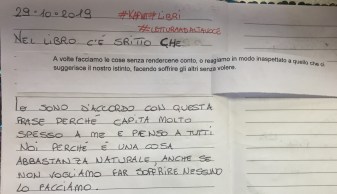 29-10-2019
#KARATELIBRI
#LETTURAADALTAVOCE
NEL LIBRO C'È SRITTO CHE
A volte facciamo le cose senza rendercene conto, o reagiamo in modo inaspettato a quello che ci
suggerisce il nostro istinto, facendo soffrire gli altri senza volere.
IO SONO D'ACCORDO CON QUESTA
FRASE PERCHÉ CAPITA MOLTO
SPESSO A ME E PENSO A TUTTI
NOI PERCHÉ È UNA COSA
ABBASTANZA NATURALE, ANCHE SE
NON VOGLIAMO FAR SOFFRIRE NESSUNO
LO FACCIAMO.